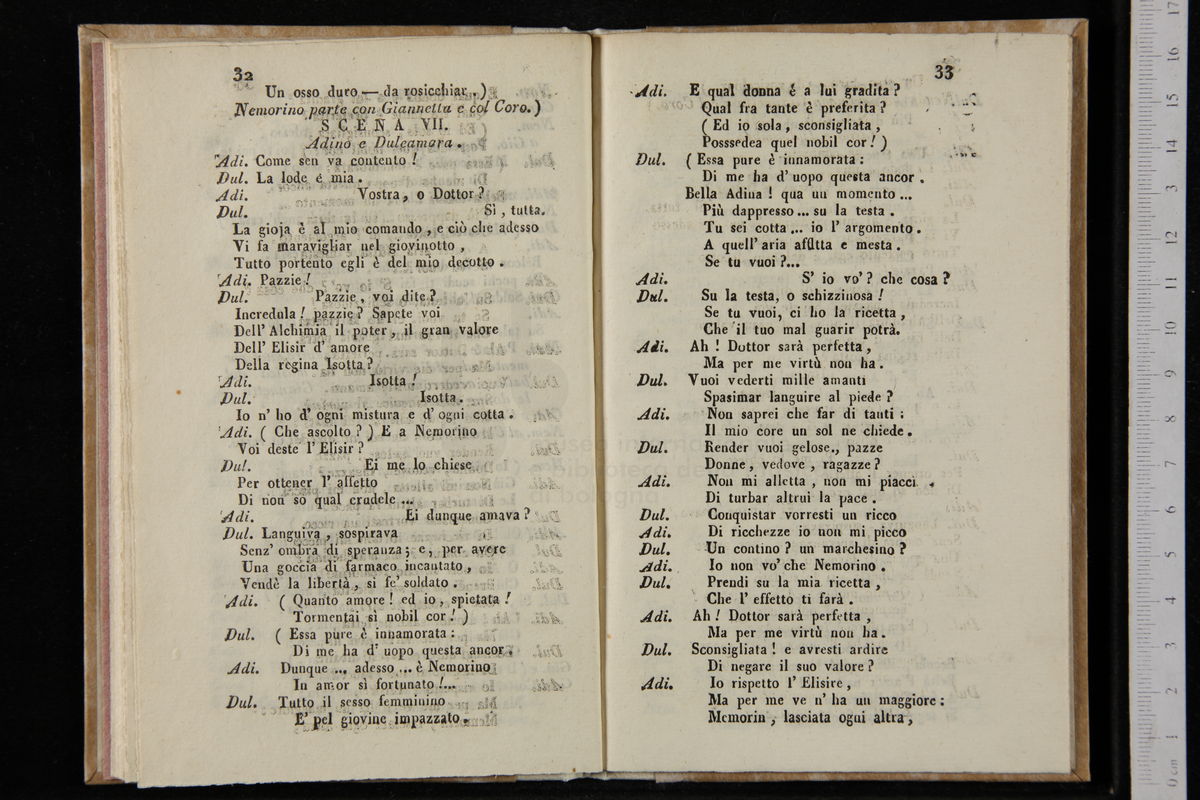 32
Un osso duro — da rosicchiar.)
Nemorino parte con Giannetta e col Coro.)
SCENA VII.
Adino e Dulcamara.
Adi. Come sen va contento!
Dul. La lode è mia.
Adi. Vostra, o Dottor?
Dul. Sì, tutta.
La gioja è al mio comando, e ciò che adesso
Vi fa maravigliar nel giovinotto,
Tutto portento egli è del mio decotto.
Adi. Pazzie!
Dul. Pazzie, voi dite?
Incredula! pazzie? Sapete voi
Dell' Alchimia il poter, il gran valore
Dell' Elisir d' amore
Della regina Isotta?
Adi. Isotta!
Dul. Isotta.
Io n' ho d' ogni mistura e d' ogni cotta.
Adi. ( Che ascolto? ) E a Nemorino
Voi deste l' Elisir?
Dul. Ei me lo chiese
Per ottener l' affetto
Di non so qual crudele ...
Adi. Ei dunque amava?
Dul. Languiva, sospirava
Senz' ombra di speranza; e, per avere
Una goccia di farmaco incantato,
Vendè la libertà, si fe' soldato.
Adi. ( Quanto amore! ed io, spietata!
Tormentai sì nobil cor! )
Dul. ( Essa pure è innamorata:
Di me ha d' uopo questa ancor.
Adi. Dunque ... adesso ... è Nemorino
In amor sì fortunato!...
Dul. Tutto il sesso femminino
E' pel giovine impazzato.
33
Adi. E qual donna é a lui gradita?
Qual fra tante è preferita?
( Ed io sola, sconsigliata,
Posssedea quel nobil cor! )
Dul. ( Essa pure è innamorata:
Di me ha d' uopo questa ancor.
Bella Adina! qua un momento ...
Più dappresso ... su la testa.
Tu sei cotta ... io l' argomento.
A quell' aria afflitta e mesta.
Se tu vuoi?...
Adi. S' io vo'? che cosa?
Dul. Su la testa, o schizzinosa!
Se tu vuoi, ci ho la ricetta,
Che il tuo mal guarir potrà.
Adi. Ah! Dottor sarà perfetta,
Ma per me virtù non ha.
Dul. Vuoi vederti mille amanti
Spasimar languire al piede?
Adi. Non saprei che far di tanti:
Il mio core un sol ne chiede.
Dul. Render vuoi gelose., pazze
Donne, vedove, ragazze?
Adi. Non mi alletta, non mi piacci.
Di turbar altrui la pace.
Dul. Conquistar vorresti un ricco
Adi. Di ricchezze io non mi picco
Dul. Un contino? un marchesino?
Adi. Io non vo' che Nemorino.
Dul. Prendi su la mia ricetta,
Che l' effetto ti farà.
Adi. Ah! Dottor sarà perfetta,
Ma per me virtù non ha.
Dul. Sconsigliata! e avresti ardire
Di negare il suo valore?
Adi. Io rispetto l' Elisire,
Ma per me ve n' ha un maggiore:
Memorin, lasciata ogni altra,